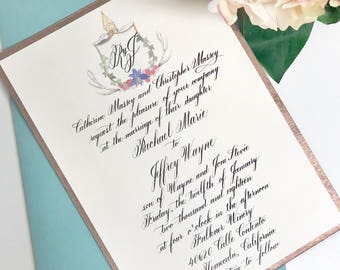 R&J
Catherine Massey and Christopher Massey
request the pleasure of your company
at the marriage of their daughter
Rachael Marie
to
Jeffrey Wayne
son of Wayne and Joni Stevie
Friday, the twelfth of January
two thousand and eighteen
at four o'clock in the afternoon
Faulkner Winery
40620 Calle Contento
Temecula, California
to follow